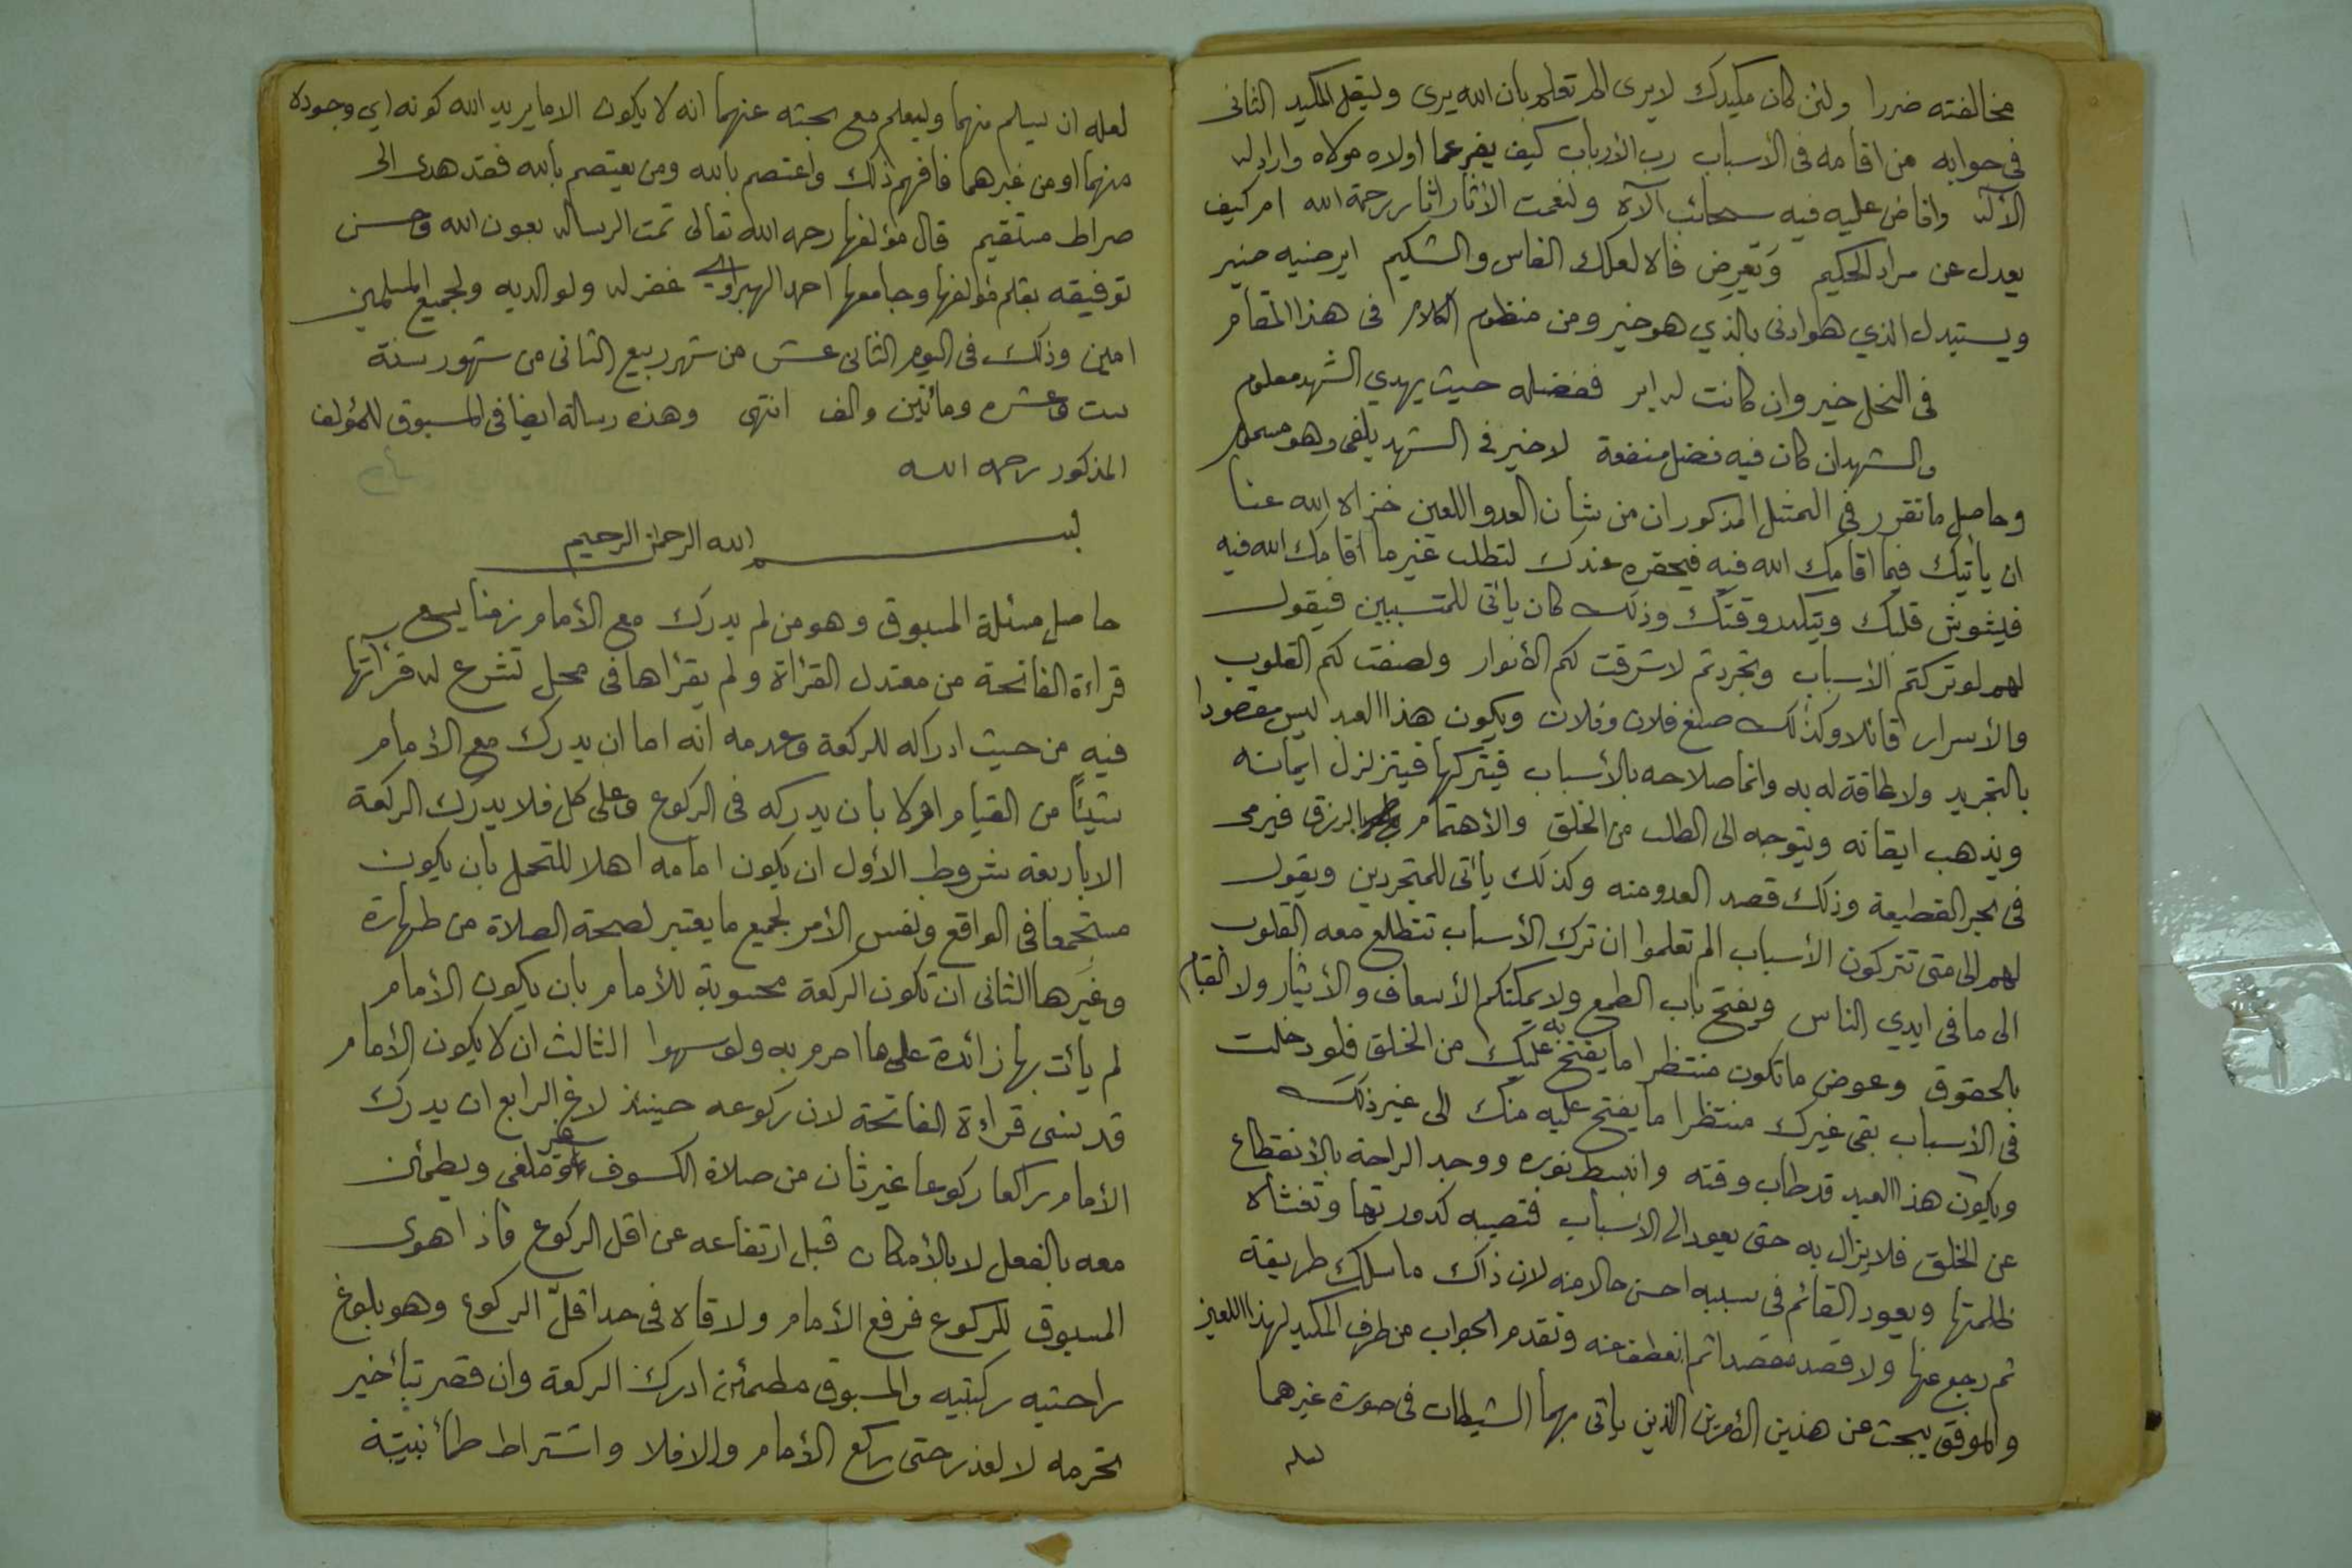 مخالفته ضررا ولئن كان مكيدك لا يرى الم تعلم بان الله يرى وليقل المكيد الثانى
فى جوابه من اقامه فى الأسباب رب الأرباب كيف يفر عما أولاه مولاه واراد له
الآله وافاض عليه فيه سحائب آلآه ولنعمت الأثار اثار رحمة الله ام كيف
يعدل عن مراد الحكيم ويعرض فاه لعلك الفاس والشكيم ايرضيه ضير
ويستبدل الذي هو ادنى بالذي هو خير ومن منظوم الكلام فى هذا المقام
فى النحل خير وان كانت له ابر ففضله حيث يهدي الشهد معلوم
والشهد ان كان فيه فضل منفعة لا خير فى الشهد يلفى وهو مسموم
وحاصل ما تقرر فى التمثيل المذكور ان من شأن العدو اللعين خزاه الله عنا
ان ياتيك فيما اقامك الله فيه فيحقره عندك لتطلب غير ما اقامك الله فيه
فيشوش قلبك ويتكدر وقتك وذلك كان يأتى للمتسببين فيقول
لهم لو تركتم الأسباب وتجردتم لاشرقت لكم الأنوار ولصفت لكم القلوب
والأسرار قائلا وكذلك صنع فلان وفلان ويكون هذا العبد ليس مقصودا
بالتجريد ولا طاقة له به وانما صلاحه بالأسباب فيتركها فيتزلزل ايمانه
ويذهب ايقانه ويتوجه الى الطلب من الخلق والأهتمام بالرزق فيرمى
فى بحر القطيعة وذلك قصد العدو منه وكذلك يأتى للمتجردين ويقول
لهم الى متى تتركون الأسباب الم تعلموا ان ترك الأسباب تتطلع معه القلوب
الى ما فى ايدي الناس ويفتح باب الطمع ولا يمكنكم الأسعاف والأيثار ولا القيام
بالحقوق وعوض ما تكون منتظرا ما يفتح به عليك من الخلق فلو دخلت
فى الأسباب بقى غيرك منتظرا ما يفتح عليه منك الى غير ذلك
ويكون هذا العبد قد طاب وقته وانبسط نوره ووجد الراحة بالأنقطاع
عن الخلق فلا يزال به حتى يعود الى الأسباب فتصيبه كدورتها وتغشاه
ظلمتها ويعود القائم فى سببه احسن حالا منه لان ذاك ما سلك طريقة
ثم رجع عنها ولا قصد مقصدا ثم انعطف عنه وتقدم الجواب من طرف المكيد لهذا اللعين
والموفق يبحث عن هذين الأمرين الذين ياتى بهما الشيطان فى صورة غيرهما
لعله
لعله ان يسلم منهما وليعلم مع بحثه عنهما انه لا يكون الا ما يريد الله كونه اي وجوده
منهما او من غيرهما فافهم ذلك واعتصم بالله ومن يعتصم بالله فقد هدى الى
صراط مستقيم قال مؤلفها رحمه الله تعالى تمت الرساله بعون الله وحسن
توفيقه بقلم مؤلفها وجامعها احمد غفر له ولوالديه ولجميع المسلمين
امين وذلك فى اليوم الثانى عشر من شهر ربيع الثانى من شهور سنة
ست وعشره ومائتين والف انتهى وهذه رسالة ايضا فى المسبوق للمؤلف
المذكور رحمه الله
بسم الله الرحمن الرحيم
حاصل مسئلة المسبوق وهو من لم يدرك مع الأمام زمنا يسع
قراءة الفاتحة من معتدل القرأة ولم يقرأها فى محل تشرع له قرأتها
فيه من حيث ادراكه للركعة وعدمه انه اما ان يدرك مع الأمام
شيئاً من القيام اولا بأن يدركه فى الركوع وعلى كل فلا يدرك الركعة
الا باربعة شروط الأول ان يكون امامه اهلا للتحمل بان يكون
مستجمعا فى الواقع ونفس الأمر لجميع ما يعتبر لصحة الصلاة من طهارة
وغيرها الثانى ان تكون الركعة محسوبة للأمام بان يكون الأمام
لم يأت بها زائدة على ما احرم به ولو سهوا الثالث ان لا يكون الأمام
قد نسى قراءة الفاتحة لان ركوعه حينئذ لاغ الرابع ان يدرك
الأمام راكعا ركوعا غير ثان من صلاة الكسوف ملغى ويطمأن
معه بالفعل لا بالأمكان قبل ارتفاعه عن اقل الركوع فاذا هوى
المسبوق للركوع فرفع الأمام ولاقاه فى حد اقلّ الركوع وهو بلوغ
راحتيه ركبتيه والمسبوق مطمئن ادرك الركعة وان قصر بتأخير
تحرمه لا لعذر حتى ركع الأمام والا فلا واشتراط طمأنينة